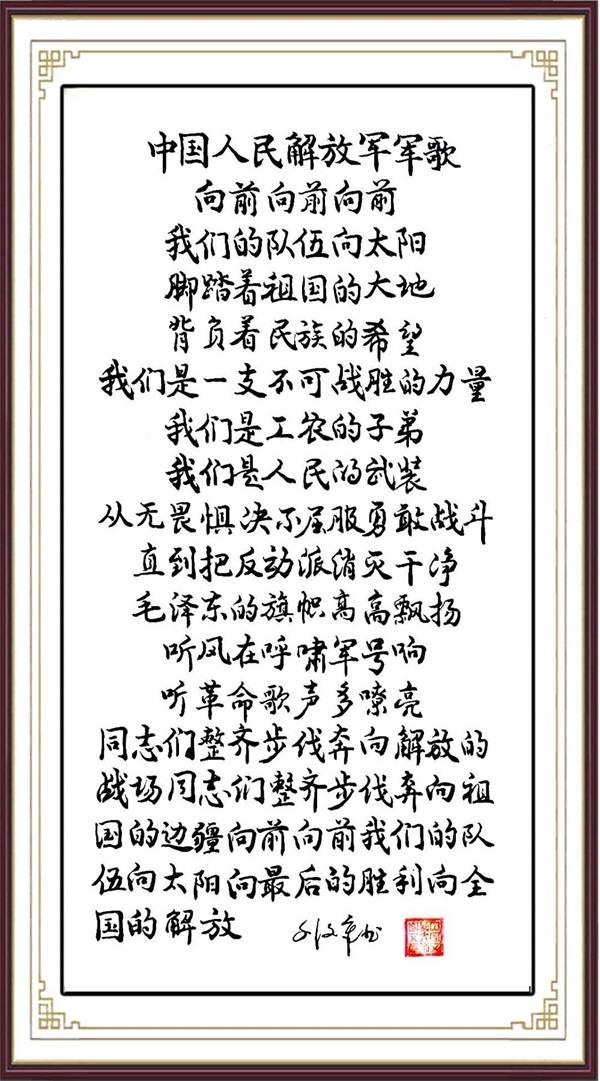 中国人民解放军军歌
向前向前向前
我们的队伍向太阳
脚踏着祖国的大地
背负着民族的希望
我们是一支不可战胜的力量
我们是工农的子弟
我们是人民的武装
从无畏惧决不屈服勇敢战斗
直到把反动派消灭干净
毛泽东的旗帜高高飘扬
听风在呼啸军号响
听革命歌声多嘹亮
同志们整齐步伐奔向解放的
战场同志们整齐步伐奔向祖
国的边疆向前向前我们的队
伍向太阳向最后的胜利向全
国的解放